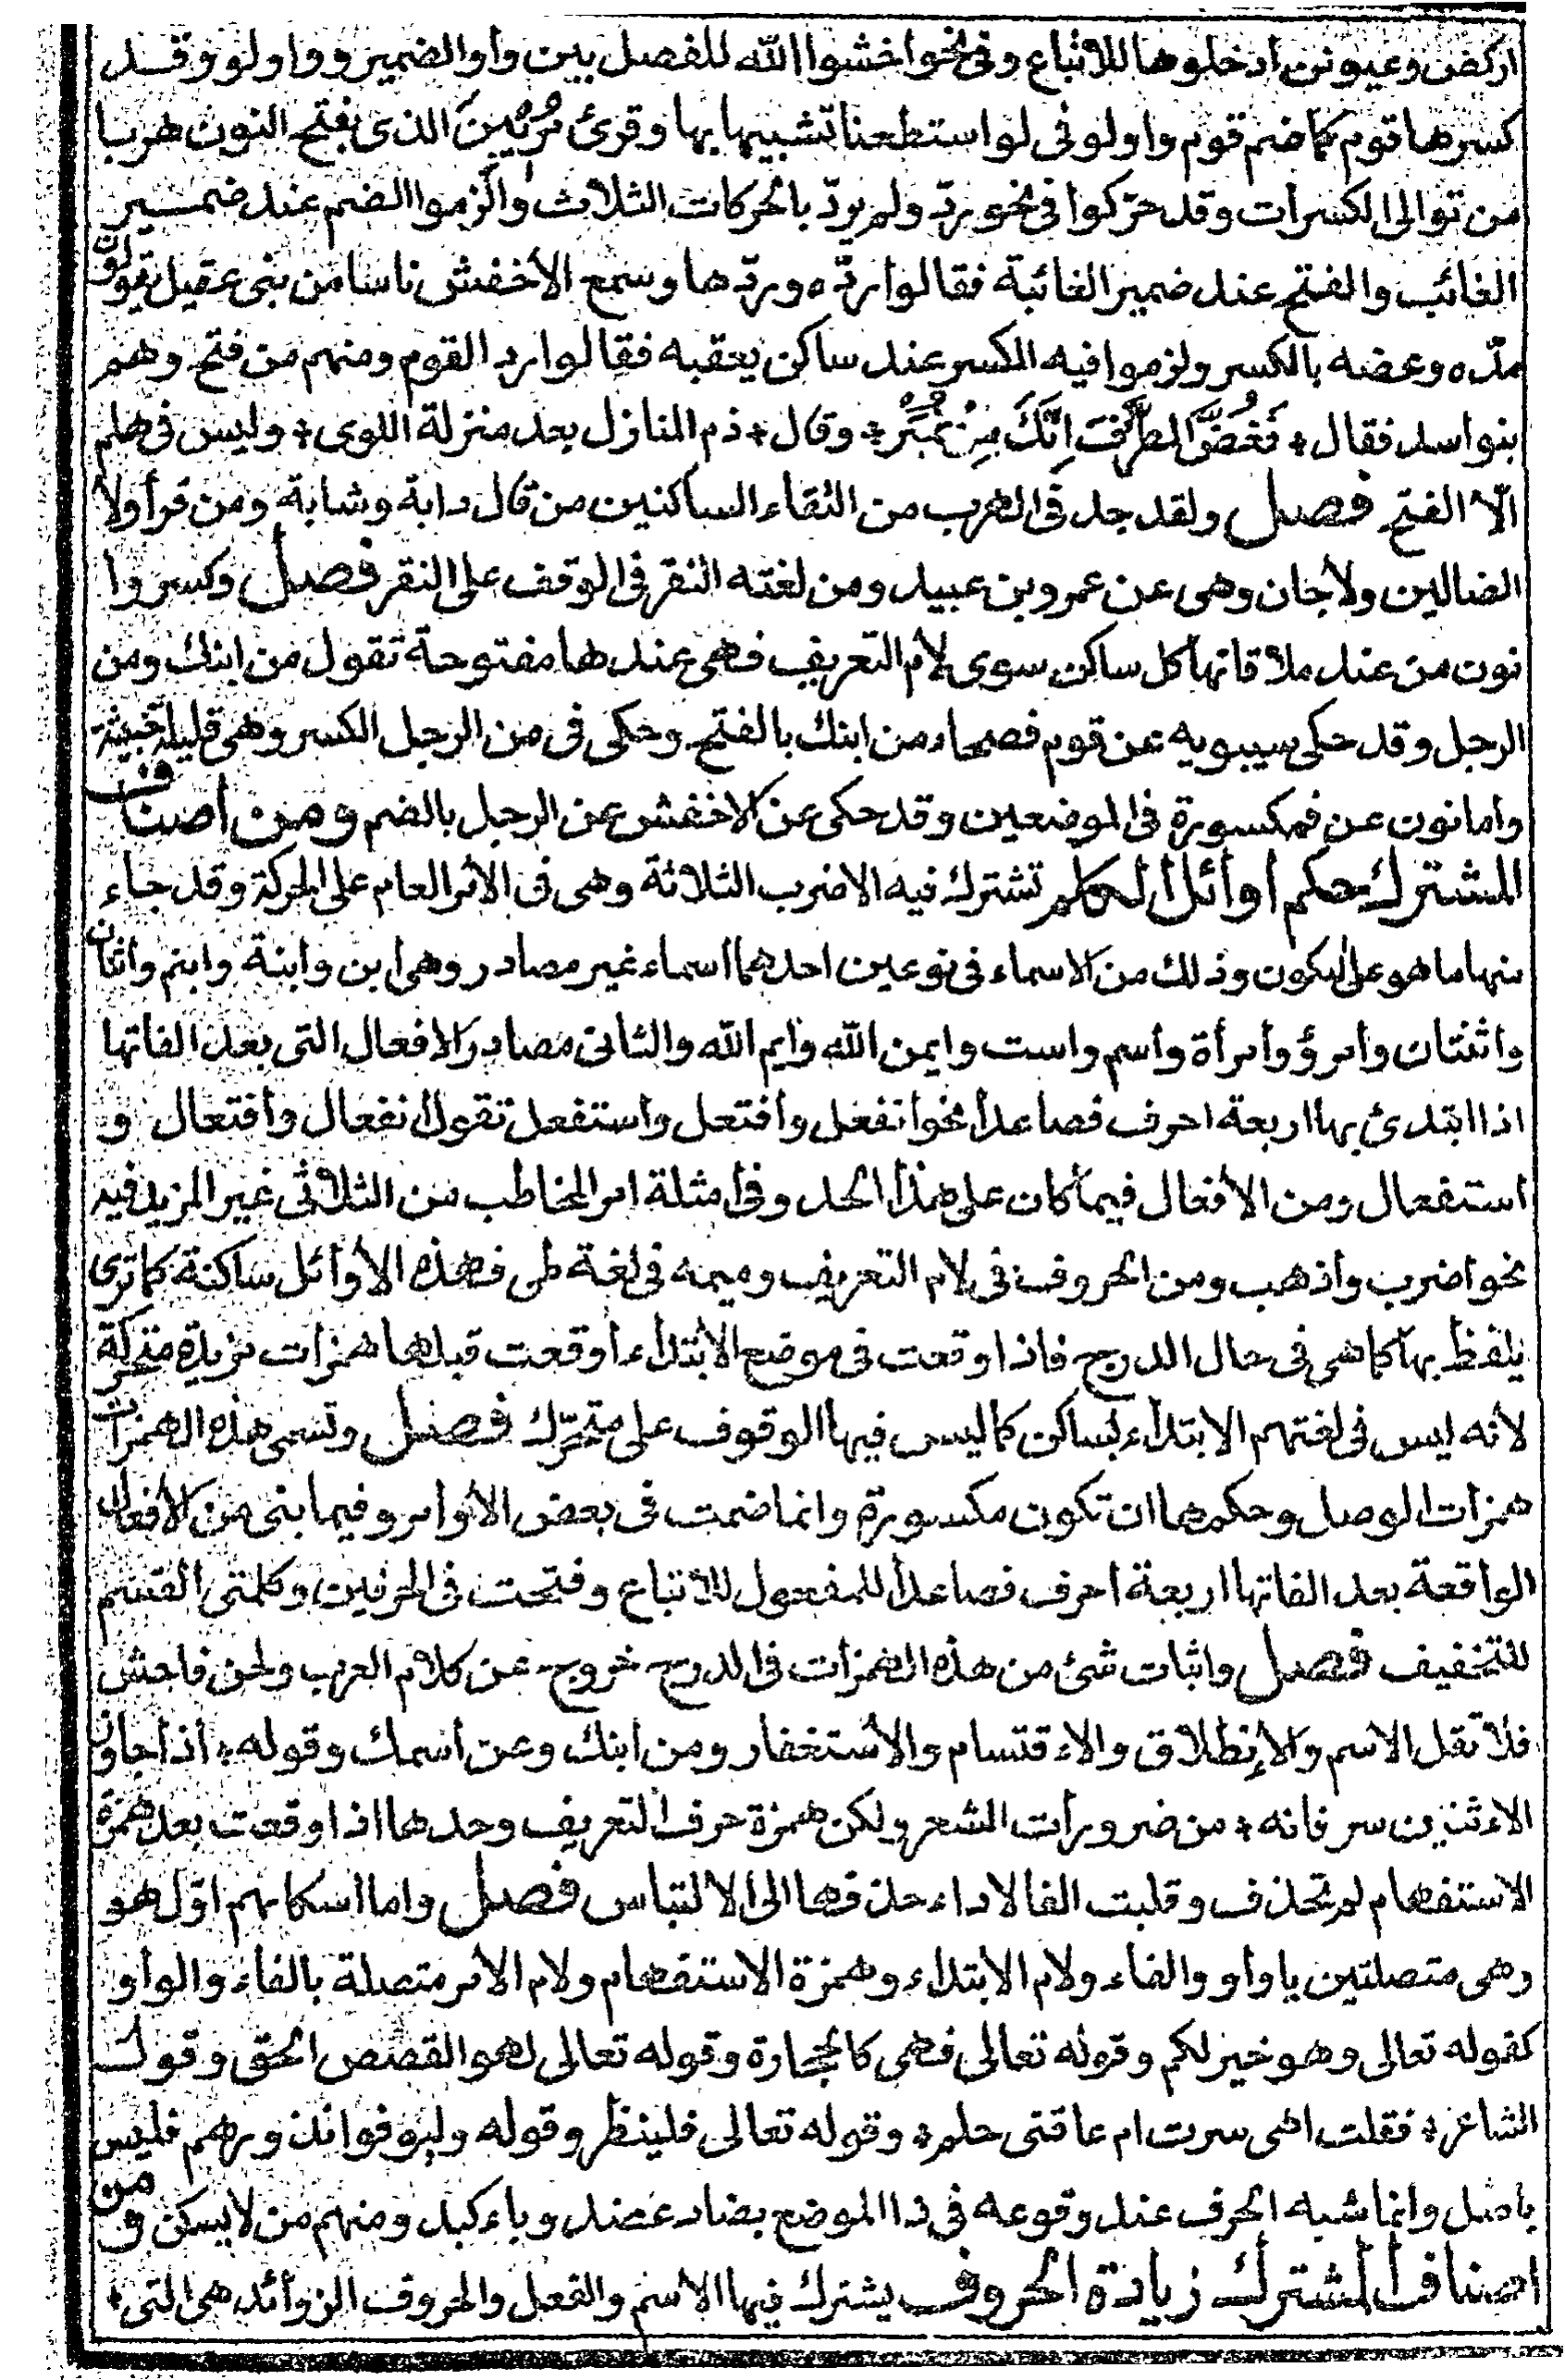 اركض وعيونن ادخلوها للاتباع وفى نحو اخشوا الله للفصل بين واو الضمير وواو لو وقد
كسرها قوم كما ضم قوم واو لو فى لو استطعنا تشبيها بها وقرئ مُرِيْبِينَ الذى بفتح النون هربا
من توالى الكسرات وقد حرّكوا فى نحو ردّ ولم يردّ بالحركات الثلاث والزموا الضم عند ضمير
الغائب والفتح عند ضمير الغائبة فقالوا ردّه وردّها وسمع الأخفش ناسا من بنى عقيل يقولون
مدّه وعضه بالكسر ولزموا فيه الكسر عند ساكن يعقبه فقالوا رد القوم ومنهم من فتح وهم
بنو اسد فقال * فَغُضَّ الطَّرْفَ اِنَّكَ مِنْ نُمَيْرٍ * وقال * ذم المنازل بعد منزلة اللوى * وليس فى هلم
الّا الفتح فصل ولقد جد فى الهرب من التقاء الساكنين من قال دابة وشابة ومن قرأ ولا
الضالين ولا جان وهى عن عمرو بن عبيد ومن لغته النقر فى الوقف على النقر فصل وكسروا
نون من عند ملاقاتها كل ساكن سوى لام التعريف فهى عندها مفتوحة تقول من ابنك ومن
الرجل وقد حكى سيبويه عن قوم فصحاء من ابنك بالفتح وحكى فى من الرجل الكسر وهى قليلة خبيثة
واما نون عن فمكسورة فى الموضعين وقد حكى عن الاخفش عن الرجل بالضم ومن اصناف
المشترك حكم اوائل الكلم تشترك فيه الاضرب الثلاثة وهى فى الأمر العام على الحركة وقد جاء
منها ما هو على السكون وذلك من الاسماء فى نوعين احدهما اسماء غير مصادر وهى ابن وابنة وابنم واثنان
واثنتان وامرؤ وامرأة واسم واست وايمن الله وايم الله والثانى مصادر الافعال التى بعد الفاتها
اذا ابتدئ بها اربعة احرف فصاعدا نحو انفعل وافتعل واستفعل تقول انفعال وافتعال و
استفعال ومن الأفعال فيما كان على هذا الحد وفى امثلة امر المخاطب من الثلاثى غير المزيد فيه
نحو اضرب واذهب ومن الحروف فى لام التعريف وميمه فى لغة طى فهذه الأوائل ساكنة كما ترى
يلفظ بها كما هى فى حال الدرج فاذا وقعت فى موضع الابتداء اوقعت قبلها همزات مزيدة متحركة
لانه ليس فى لغتهم الابتداء بساكن كما ليس فيها الوقوف على متحرّك فصل وتسمى هذه الهمزات
همزات الوصل وحكمها ان تكون مكسورة وانما ضمت فى بعض الأوامر وفيما بنى من الأفعال
الواقعة بعد الفاتها اربعة احرف فصاعدا للمفعول للاتباع وفتحت فى الحرفين وكلمتى القسم
للتخفيف فصل واثبات شئ من هذه الهمزات فى الدرج خروج عن كلام العرب ولحن فاحش
فلا تقل الاسم والإنطلاق والاءقتسام والأستغفار ومن ابنك وعن اسمك وقوله * اذا جاوز
الاءثنين سر فانه * من ضرورات الشعر ولكن همزة حرف التعريف وحدها اذا وقعت بعد همزة
الاستفهام لم تحذف وقلبت الفا لاداء حذفها الى الالتباس فصل واما اسكانهم اوّل هو
وهى متصلتين بالواو والفاء ولام الابتداء وهمزة الاستفهام ولام الأمر متصلة بالفاء والواو
كقوله تعالى وهو خير لكم وقوله تعالى فهى كالحجارة وقوله تعالى لهو القصص الحق وقول
الشاعر * فقلت اهى سرت ام عاقتى حلم * وقوله تعالى فلينظر وقوله وليوفوا نذورهم فليس
باصل وانما شبه الحرف عند وقوعه فى ذا الموضع بضاد عضد وباء كبد ومنهم من لا يسكن ومن
اصناف المشترك زيادة الحروف يشترك فيها الأسم والفعل والحروف الزوائد هى التى *